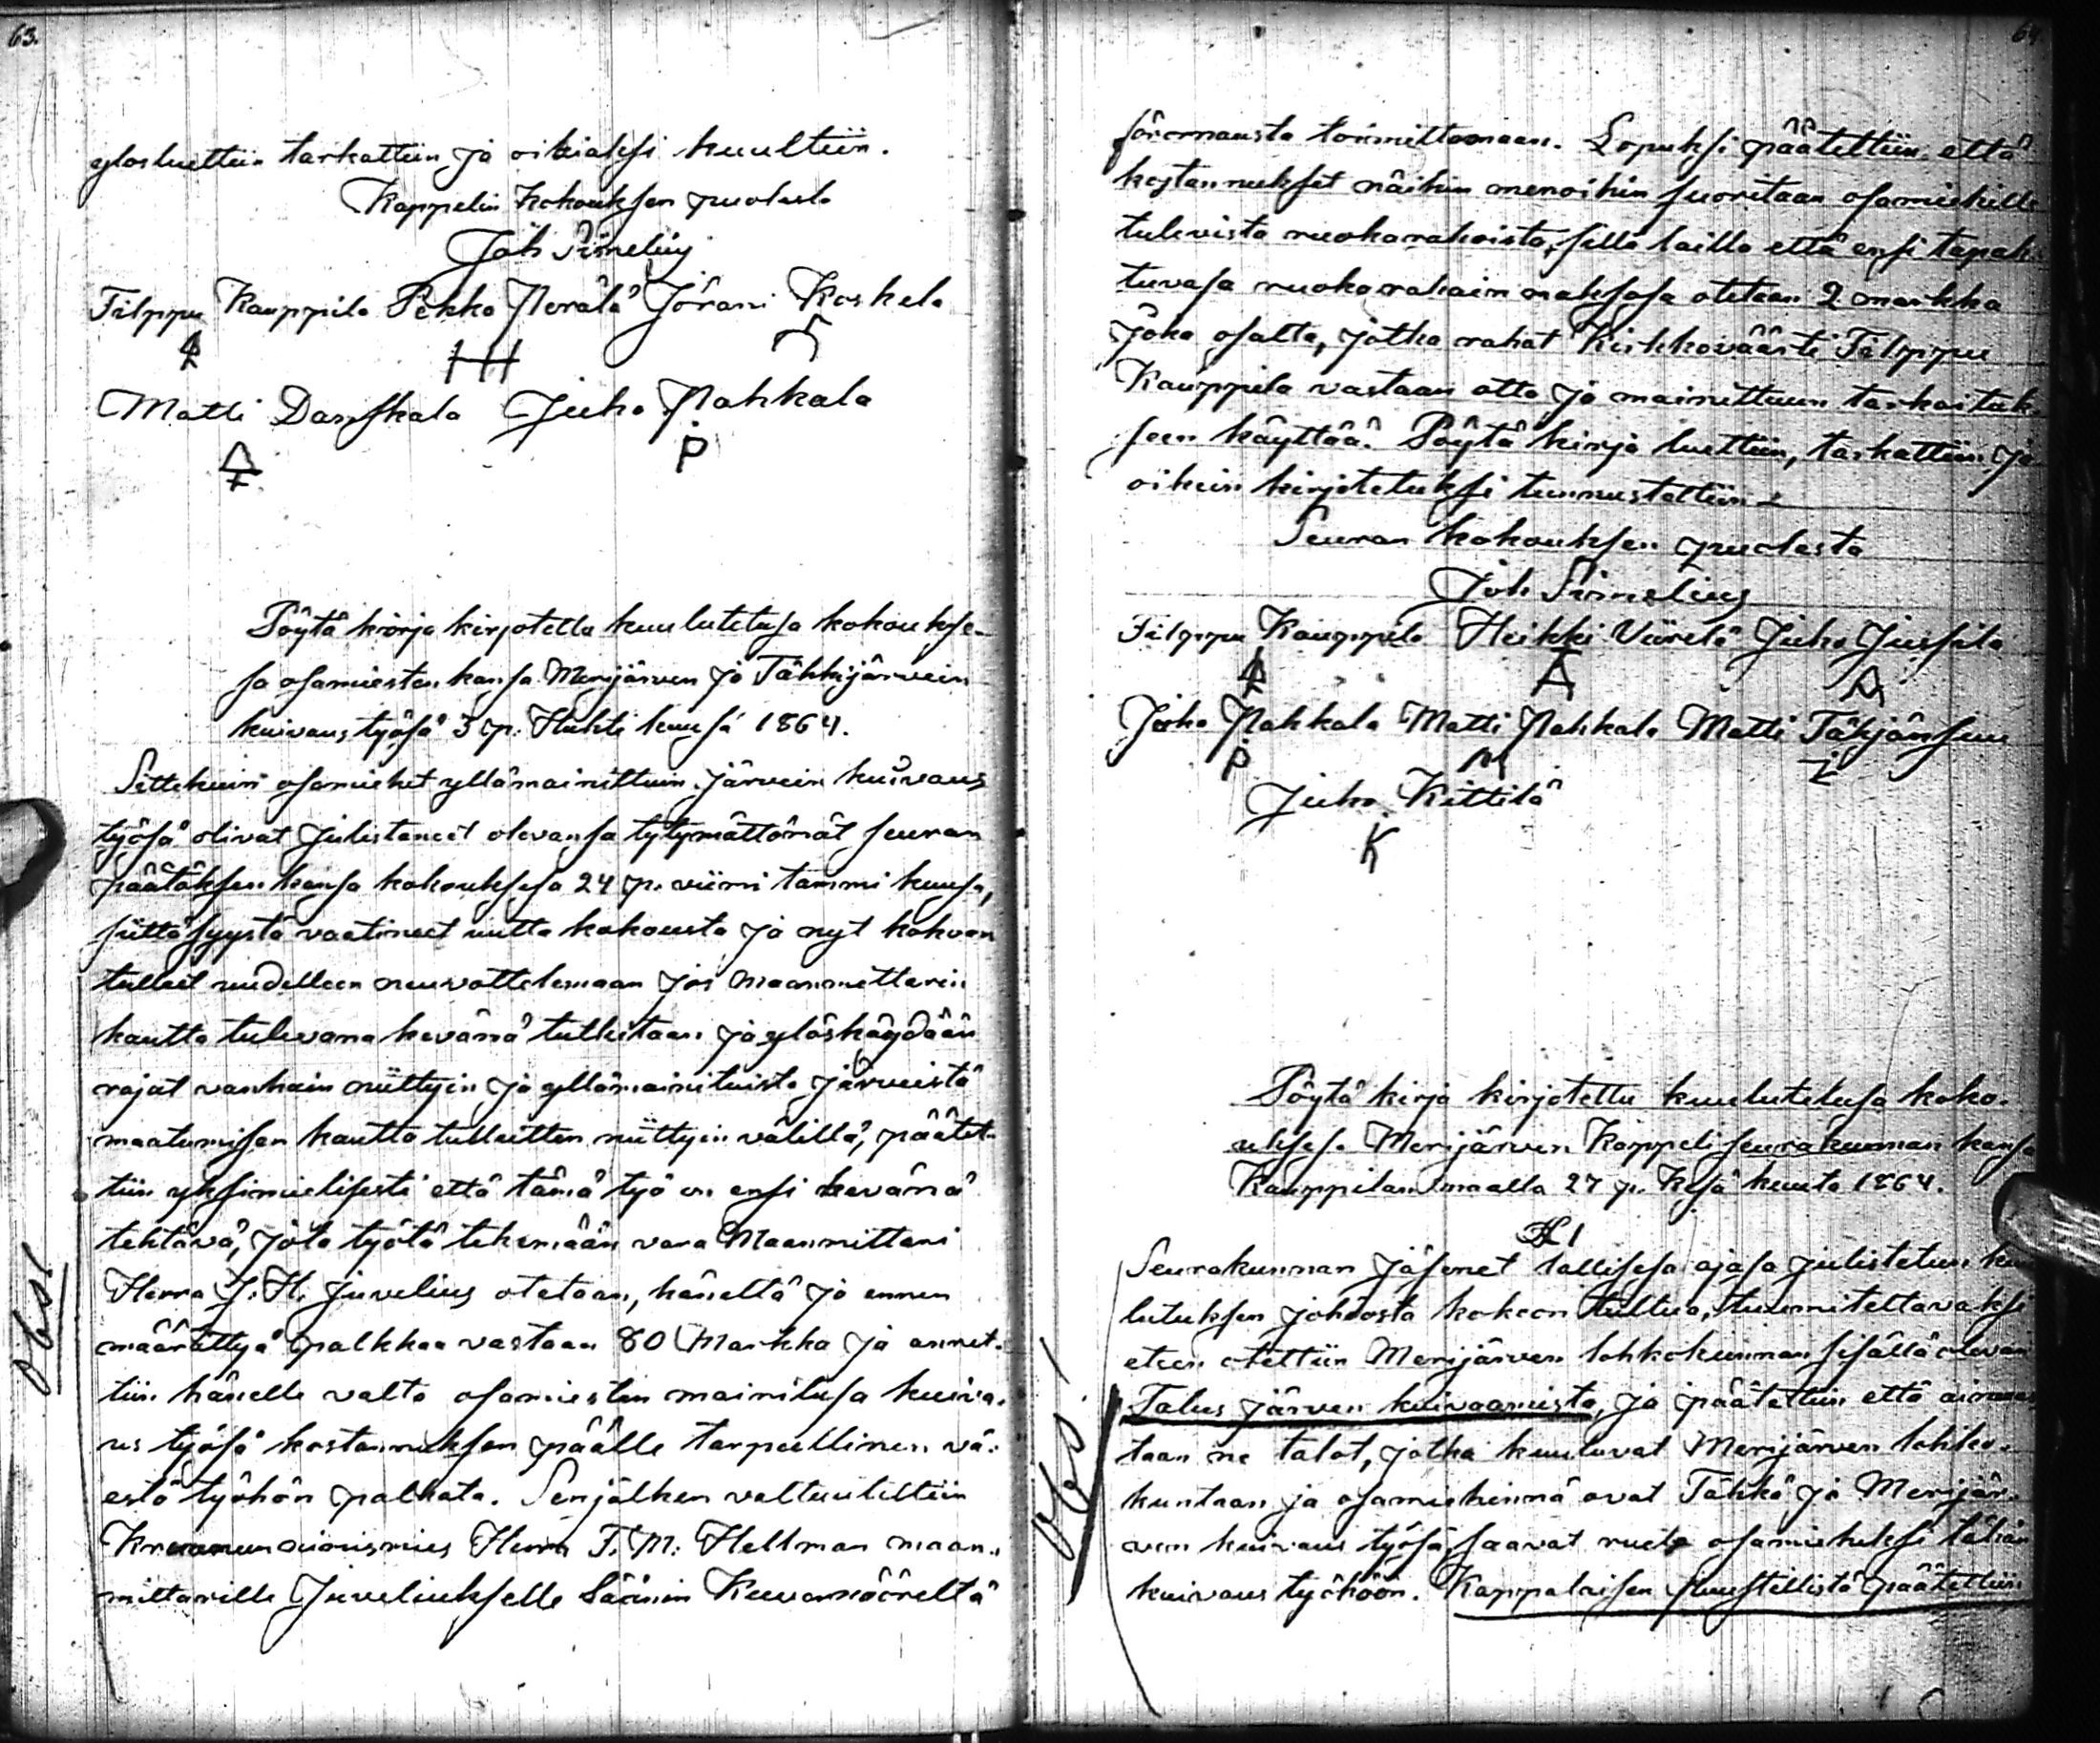 63.
ylosluettiin tarkattiin ja oikiaksi kuultiin.
Kappelin Kokouksen puolesta
Joh Simelius
Filppu Kauppila Pekka Perälä Jörani Koskela
Matti Danskala Juho Pahkala
P
Pöytä kirja kirjotettu kuulutetusa kokoukse-
sa osamiesten kansa Merijärven ja Tähkijärvein
kuivaus työsä 3 p. Huhti kuusa 1864.
Sittekuin osamiehet yllämainittuin järvein kuivaus
työsä olivat julistaneet olevansa tytymättömät seuran
päätöksen kansa kokouksesa 24 p. viimi tammi kuusa,
siittä syystä vaatineet uutta kokousta ja nyt kokoon
tulleet uudelleen neuvottelemaan jos maanmittarin
kautta tulevana kevännä tutkitaan ja ylöskäydään
rajat vanhain niittyin ja yllämainituista järveistä
maatumisen kautta tulleitten niittyin välillä, päätet-
tiin yksimielisesti että tämä työ on ensi kevännä
tehtävä, jota työtä tekemään vara Maanmittari
Herra J. H. Juvelius otetaan, häneltä jo ennen
määrättyä palkkaa vastaan 80 Markka ja annet-
tiin hänelle valta osamiesten mainitusa kuiva-
us työsä kostannuksen päälle tarpeellinen vä-
estö työhön palkata. Senjälken valtuutettiin
Kruunun Herra F. M. Hellman maan-
mittarille Juveliukselle Läänin Kuvernööreltä
Obs!
64
förornausta toimittamaan. Lopuksi päätettiin, että
kostannukset näihin menoihin suoritaan osamiehille
tulevista ruokarahoista, sillä lailla että ensi tapah-
tuvasa ruokarahain maksosa otetaan 2 markka
Joka osalta, jotka rahat Kirkkoväärti Filppu
Kauppila vastaan otta ja mainittuun tarkoituk-
seen käyttää. Pöytä kirja luettiin, tarkattiin ja
oikein kirjotetuksi tunnustettiin
Seuran kokouksen puolesta
Joh Simelius
Filppu Kauppila Heikki Viirelä Juho Jussila
Juho Pahkala Matti Pahkala Matti Täkjänsuu
P
Juho Kittilä
K
Pöytä kirja kirjotettu kuulutetusa koko-
uksesa Merijärven Kappeli seurakunnan kansa
Kauppilan maalla 27 p. Kesä kuuta 1864.
§ 1
Seurakunnan jäsenet laillisesa ajasa julistetun kuu
lutuksen johdosta kokoon tultua, tuumiteltavaksi
eteen otettiin Merijärven lohkokunnan sisällä olevan
Talus järven kuivaamista, ja päätettiin että ainoas
taan ne talot, jotka kuuluvat Merijärven lohko-
kuntaan ja osamiehinnä ovat Tähkä ja Merijär-
ven kuivaus työsä, saavat rueta osamiehiksi tähän
kuivaus työhöön. Kappalaisen puustellistä päätettiin
Obs!